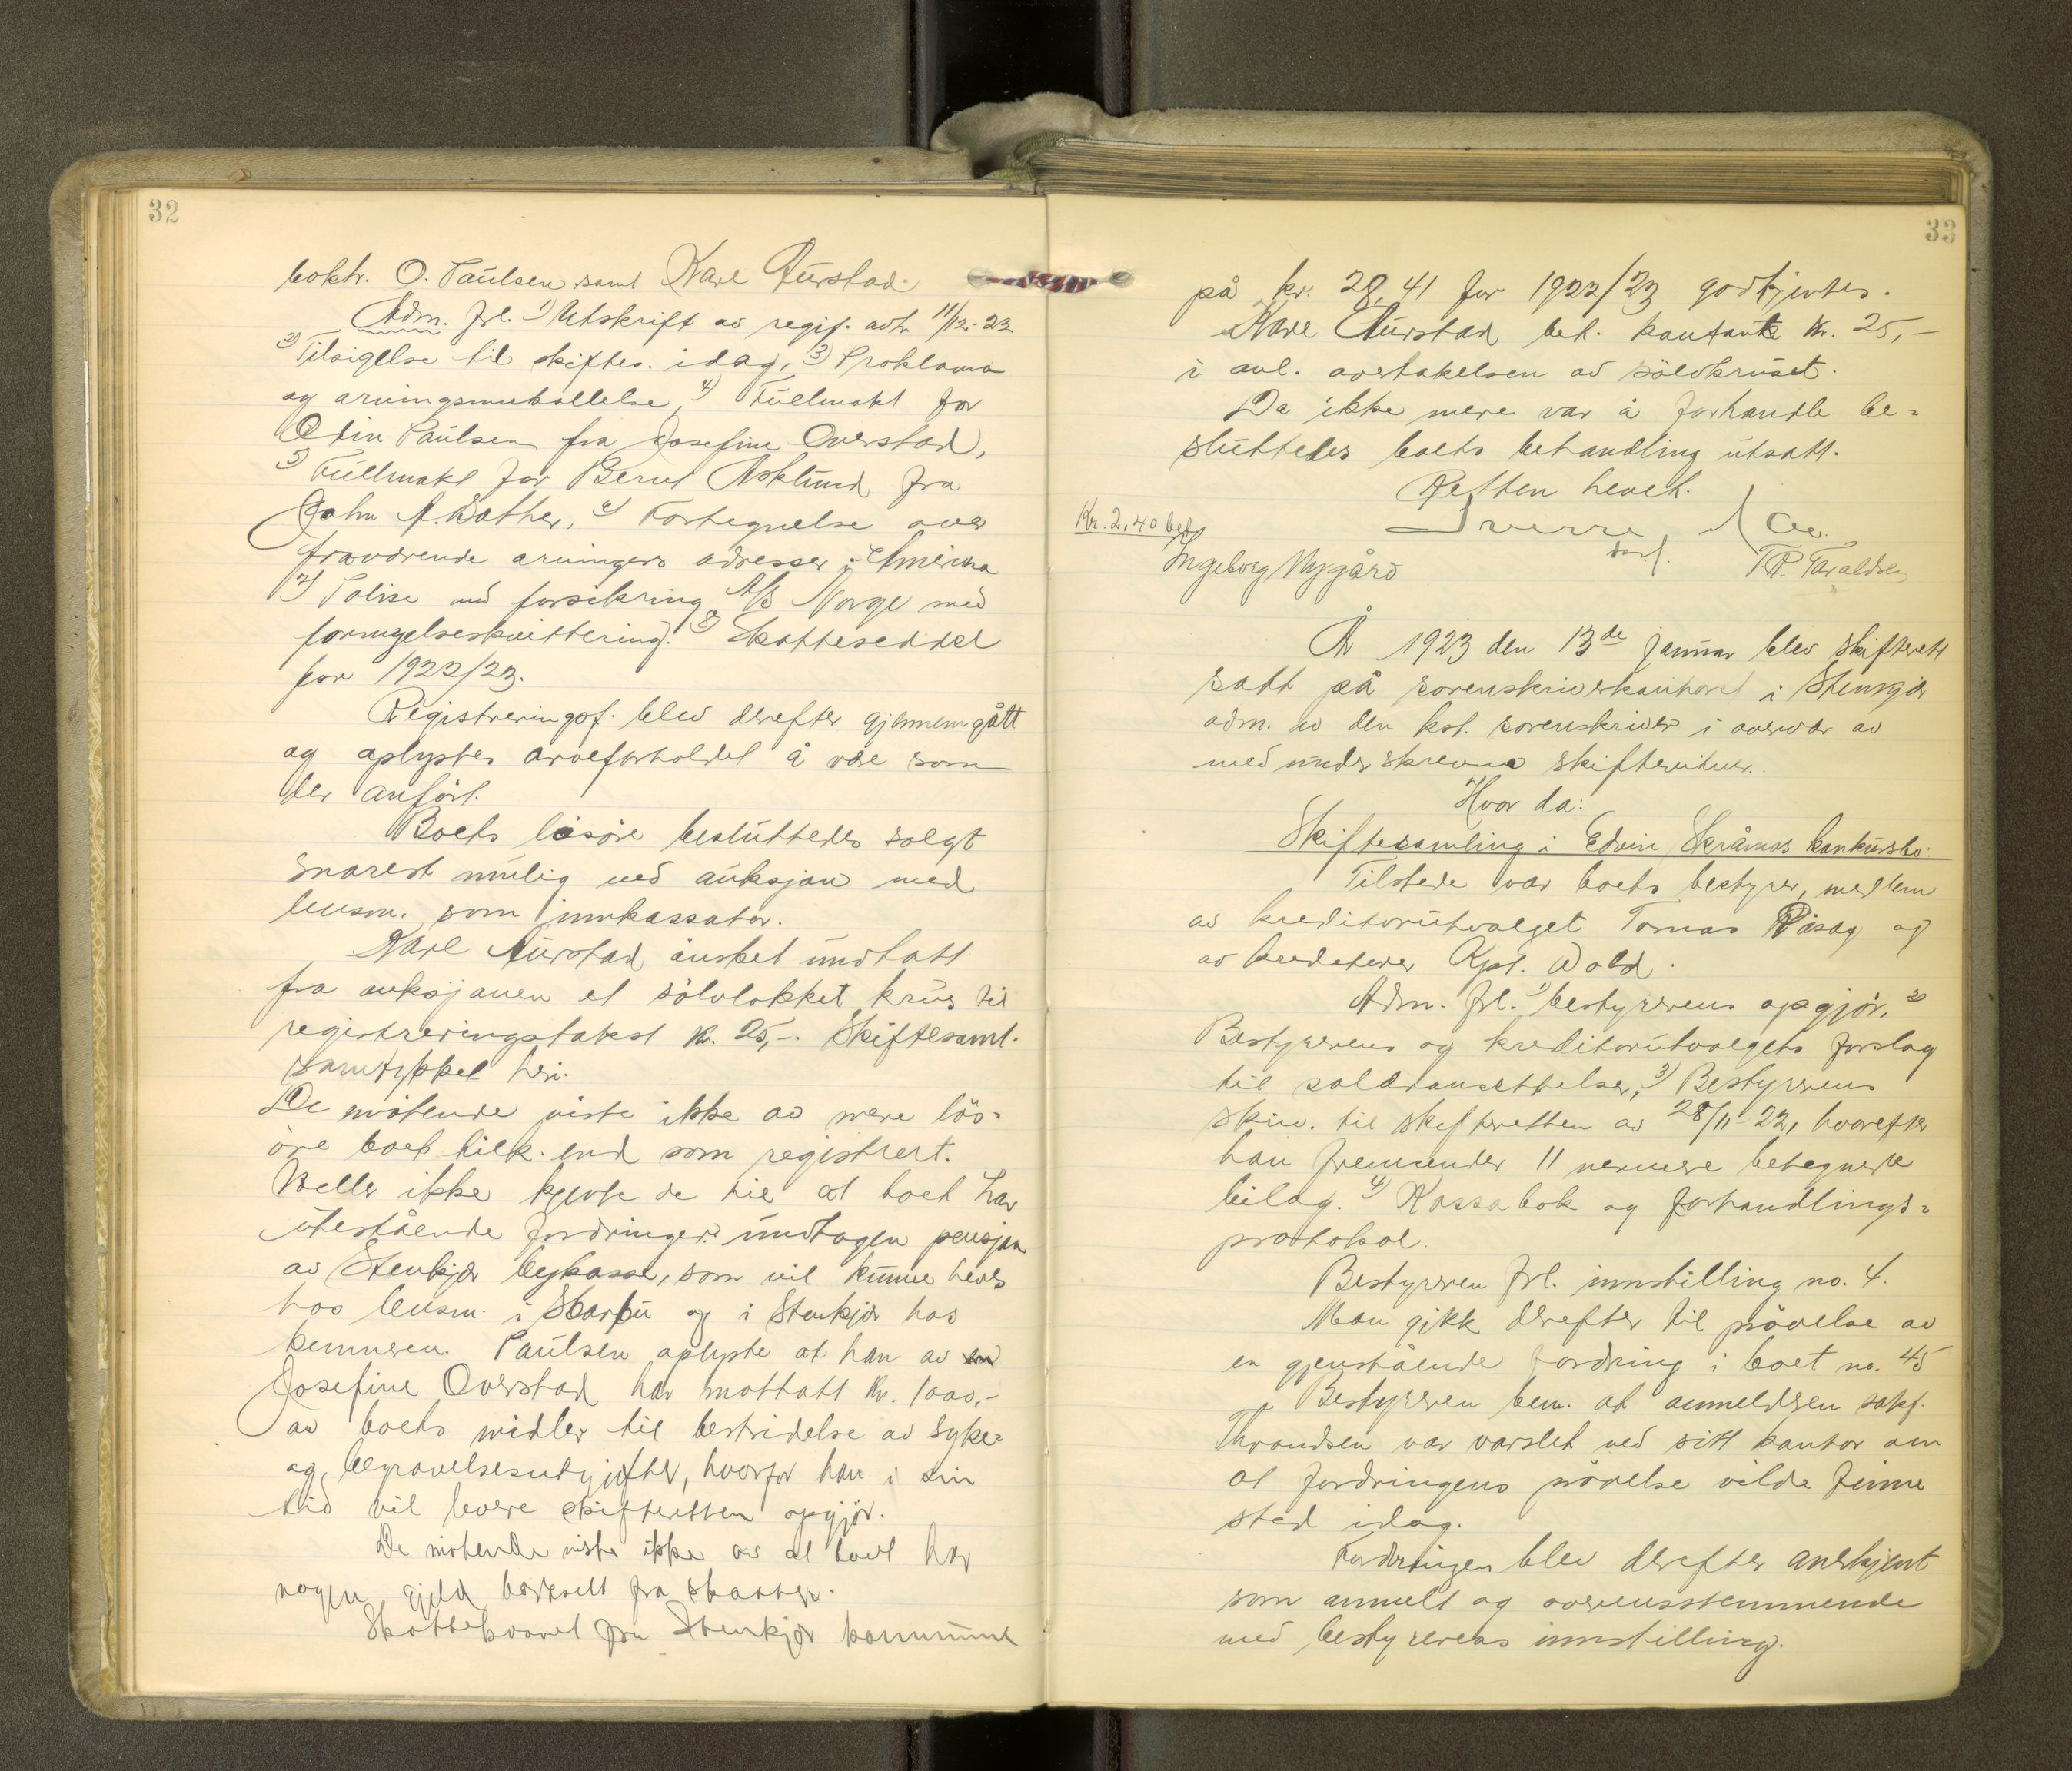 32
boktr. O. Paulsen samt Karl Aurstad.
Adm. frl. 1) Utskrift av regif. avh. 11/12-22
2) Tilsigelse til skiftes. idag, 3) Proklama
og arvingsinnkallelse, 4) Fullmakt for
Odin Paulsen fra Josefine Overstad,
5) Fullmakt for Bernt Asklund fra
John A. Wather, 6) Fortegnelse over
fraværende arvingers adresser i Amerika
7) Polise med forsikring A/S Norge med
fornyelseskvittering. 8) Skatteseddel
for 1922/23.
Registreringsf. blev derefter gjennemgått
og oplystes arveforholdet å være som
der anført.
Boets løsøre besluttedes solgt
snarest mulig ved auksjon med
lensm. som innkassator.
Karl Aurstad ønsket undtatt
fra auksjonen et sølvlokket krus til
registreringstakst kr. 25,-. Skiftesaml.
samtykket heri.
De møtende viste ikke av mere løs-
øre boet tilh. end som registrert.
Heller ikke kjente de til at boet har
utestående fordringer undtagen pensjon
av Stenkjær bykasse, som vil kunne heves
hos lensm. i Sparbu og i Stenkjær hos
kemneren. Paulsen oplyste at han av
Josefine Overstad har mottatt kr. 1000,-
av boets midler til bestridelse av syke-
og begravelsesutgifter, hvorfor han i sin
tid vil levere skifteretten opgjør.
De møtende viste ikke av at boet har
nogen gjeld bortsett fra skatter.
Skattekravet fra Stenkjær kommune
33
på kr. 28,41 for 1922/23 godkjentes.
Karl Aurstad bet. kontant kr. 25,-
i anl. overtakelsen av sølvkruset.
Da ikke mere var å forhandle be-
sluttedes boets behandling utsatt.
Retten hevet.
Kr. 2,40 bet.
Sverre
Ingeborg Nygård
T.R. Taraldsen
År 1923 den 13de januar blev skifterett
satt på sorenskriverkontoret i Stenkjær
adm. av den kst. sorenskriver i overvær av
medunderskrevne skiftevitner.
Hvor da:
Skiftesamling i Edvin Skrånes konkursbo:
Tilstede var boets bestyrer, medlem
av kreditorutvalget Tomas Råsag og
av kreditorer Kpt. Wold.
Adm. frl. 1) bestyrerens opgjør, 2)
Bestyrerens og kreditorutvalgets forslag
til salæransettelser, 3) Bestyrerens
skriv. til skifteretten av 28/11-22, hvorefter
han fremsender 11 nermere betegnede
bilag. 4) Kassabok og forhandlings-
protokol.
Bestyreren frl. innstilling no. 4.
Man gikk derefter til prøvelse av
en gjenstående fordring i boet no. 45
Bestyreren bem. at anmelderen sakf.
Throndsen var varslet ved sitt kontor om
at fordringens prøvelse vilde finne
sted idag.
Fordringen blev derefter anerkjent
som anmelt og overensstemmende
med bestyrerens innstilling.